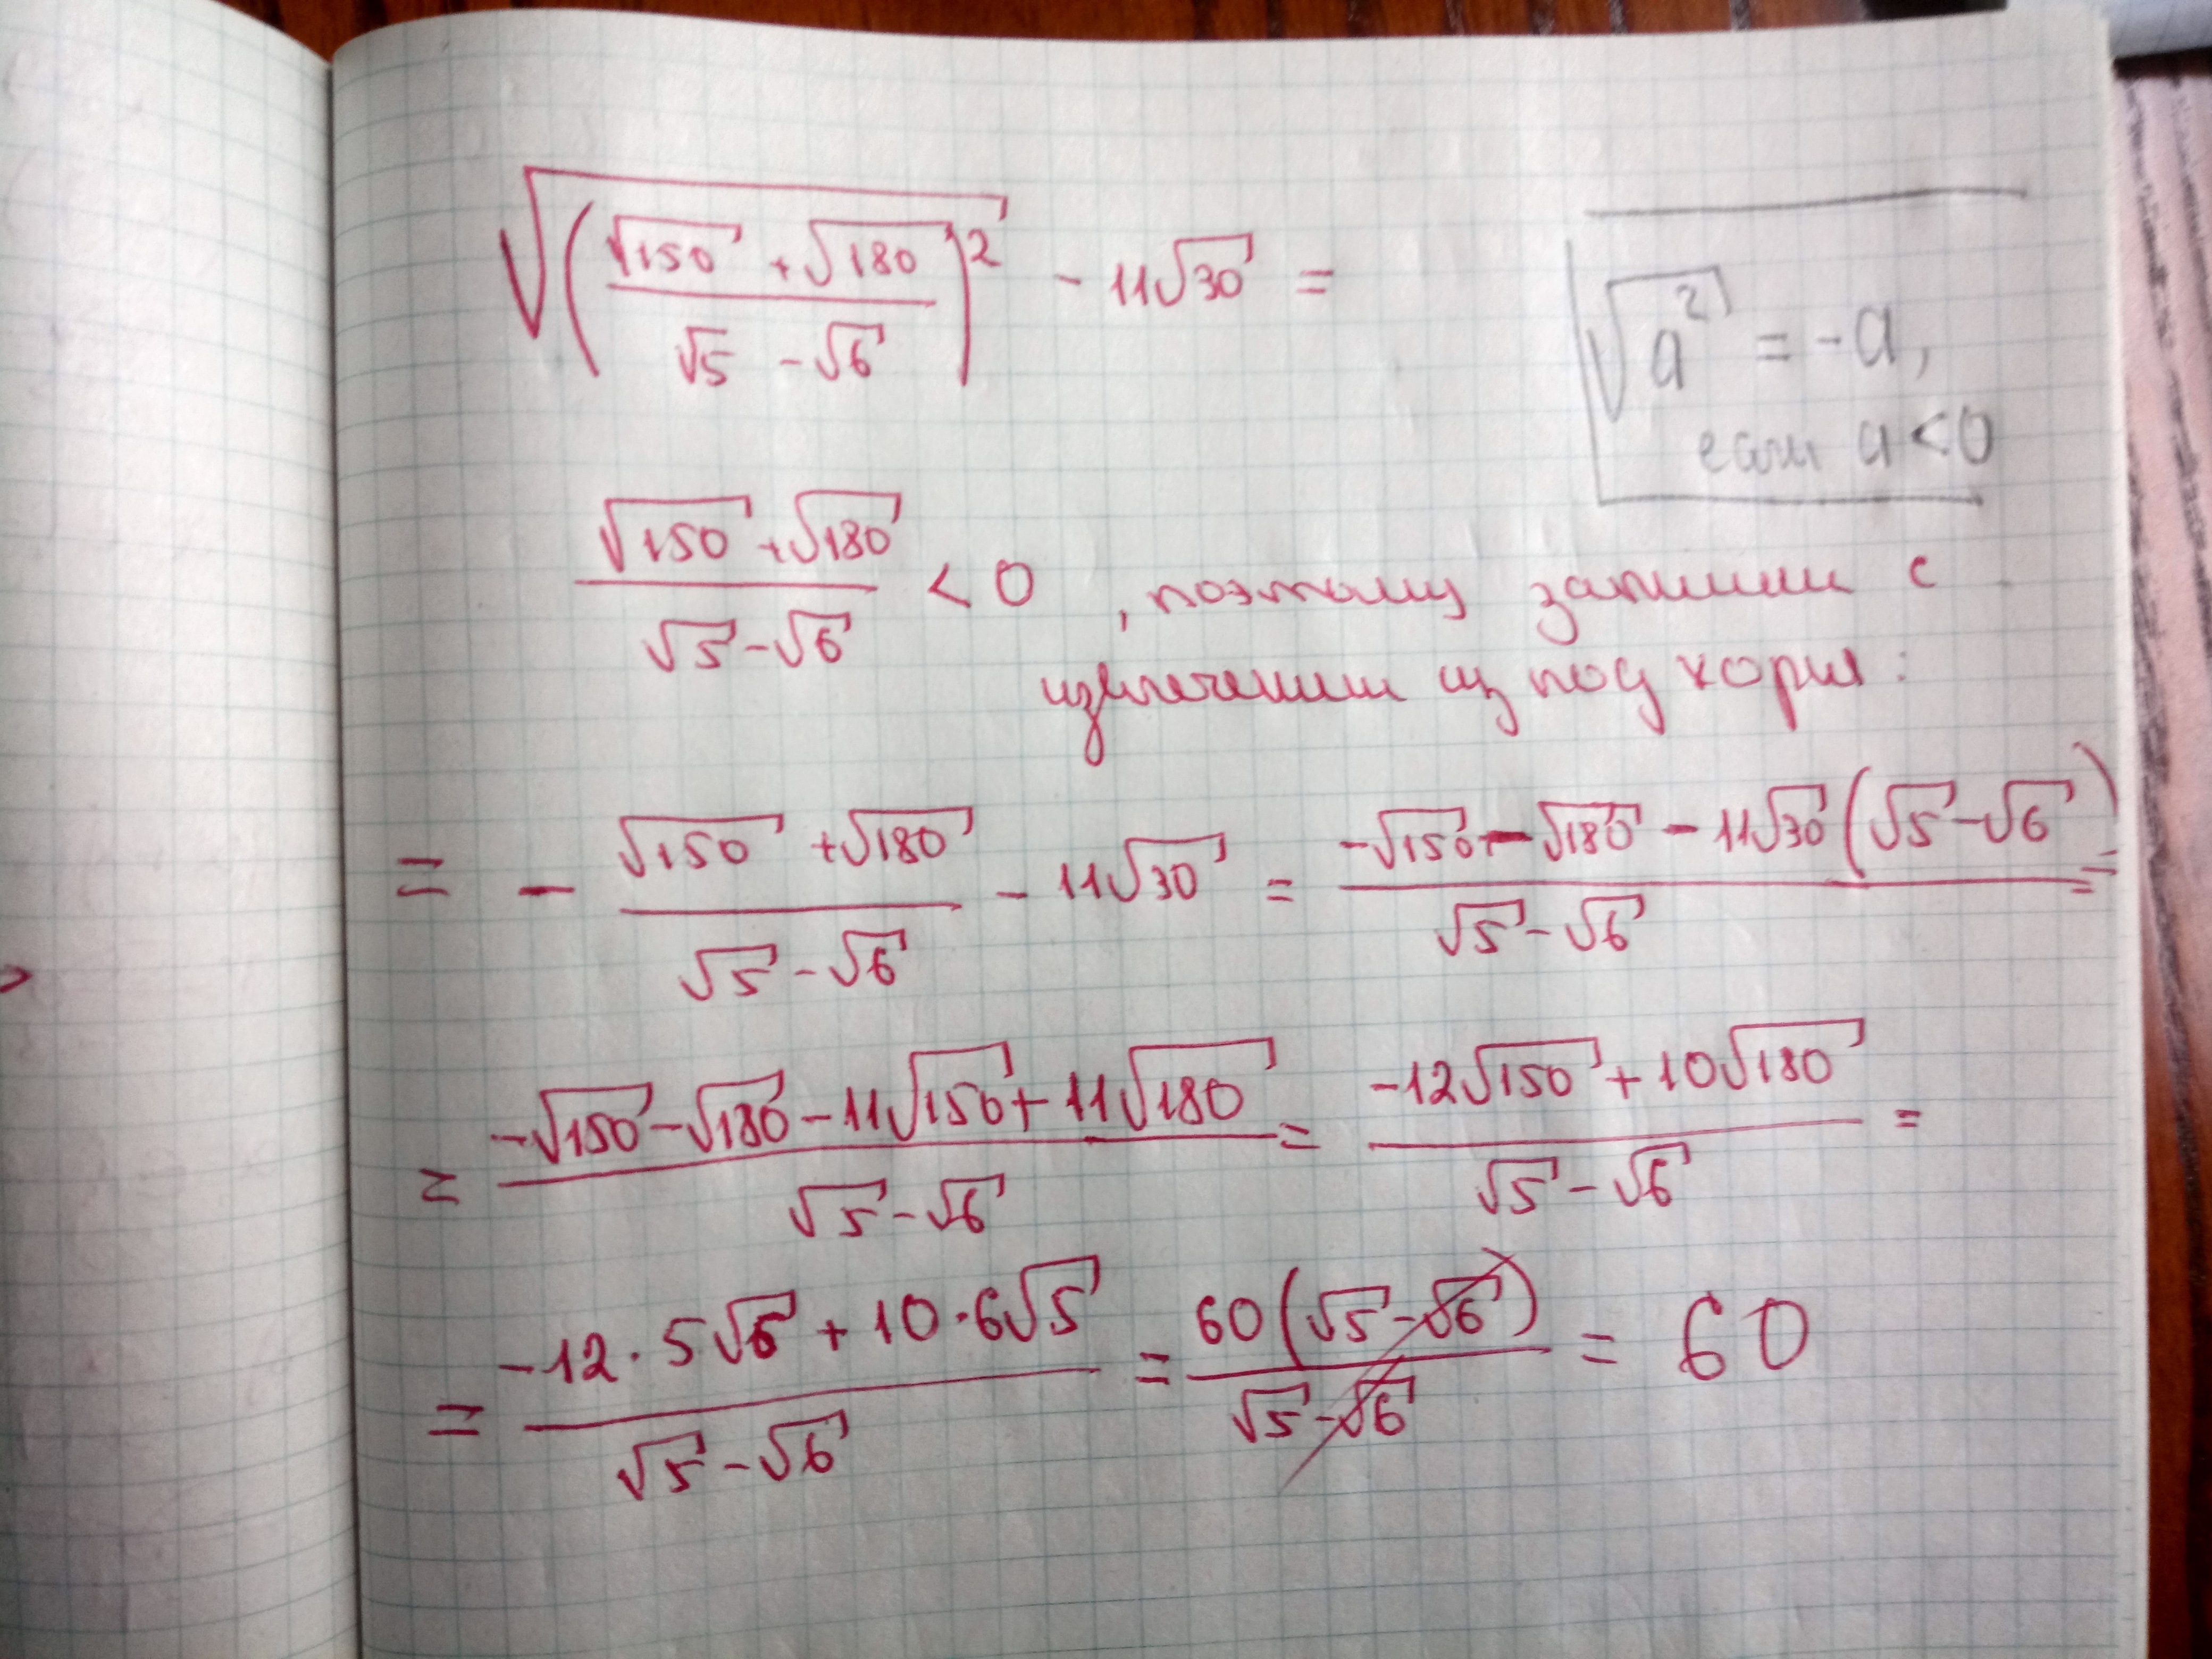 √((√150 + √180)/(√5 - √6))² - 11√30 =
√a² = -a,
если a < 0
(√150 + √180)/(√5 - √6) < 0 , поэтому запишем с
извлечением из под корня :
= - (√150 + √180)/(√5 - √6) - 11√30 = (-√150 - √180 - 11√30(√5 - √6))/(√5 - √6) =
= (-√150 - √180 - 11√150 + 11√180)/(√5 - √6) = (-12√150 + 10√180)/(√5 - √6) =
= (-12·5√6 + 10·6√5)/(√5 - √6) = 60(√5 - √6)/(√5 - √6) = 60